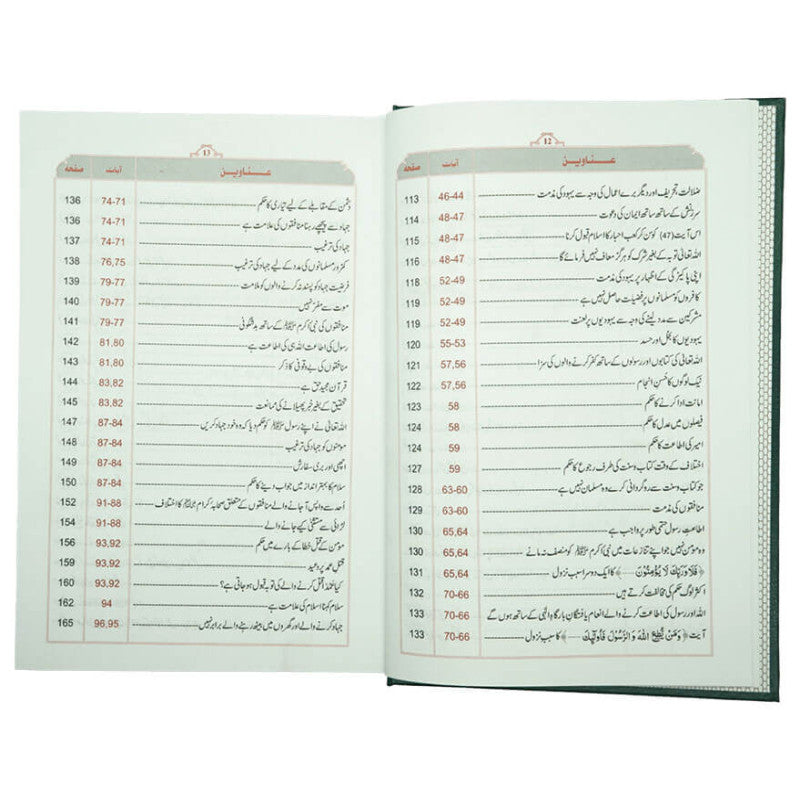 12
عناوین آیات صفحہ
ضلالت تحریف اور دیگر برے اعمال کی وجہ سے یہود کی مذمت 46-44 113
سرزنش کے ساتھ ساتھ ایمان کی دعوت 48-47 114
اس آیت (47) کو سن کر کعب احبار کا اسلام قبول کرنا 48-47 115
اللہ تعالیٰ توبہ کے بغیر شرک کو ہرگز معاف نہیں فرمائے گا 48-47 116
اپنی پاکیزگی کے اظہار پر یہود کی مذمت 52-49 118
کافروں کو مسلمانوں پر فضیلت حاصل نہیں ہے 52-49 119
مشرکین سے مدد لینے کی وجہ سے یہودیوں پر لعنت 52-49 119
یہودیوں کا بخل اور حسد 55-53 120
اللہ تعالیٰ کی کتابوں اور رسولوں کے ساتھ کفر کرنے والوں کی سزا 57,56 121
نیک لوگوں کا حُسن انجام 57,56 122
امانت ادا کرنے کا حکم 58 123
فیصلوں میں عدل کا حکم 58 124
امیر کی اطاعت کا حکم 59 124
اختلاف کے وقت کتاب وسنت کی طرف رجوع کا حکم 59 127
جو کتاب وسنت سے روگردانی کرے وہ مسلمان نہیں ہے 63-60 128
منافقوں کی مذمت 63-60 129
اطاعتِ رسول حتمی طور پر واجب ہے 65,64 130
وہ مومن نہیں جو اپنے تنازعات میں نبی اکرم ﷺ کو منصف نہ مانے 65,64 130
﴿فَلَا وَرَبِّكَ لَا يُؤْمِنُونَ ---﴾ کا ایک دوسرا سبب نزول 65,64 131
اکثر لوگ حکم کی مخالفت کرتے ہیں 70-66 132
اللہ اور رسول کی اطاعت کرنے والے انعام یافتگان بارگاہِ الٰہی کے ساتھ ہوں گے 70-66 133
آیت ﴿وَمَنْ يُّطِعِ اللّٰهَ وَالرَّسُوْلَ فَاُولٰٓئِكَ ---﴾ کا سبب نزول 70-66 133
13
عناوین آیات صفحہ
دشمن کے مقابلے کے لیے تیاری کا حکم 74-71 136
جہاد سے پیچھے رہنا منافقوں کی علامت ہے 74-71 136
جہاد کی ترغیب 74-71 137
کمزور مسلمانوں کی مدد کے لیے جہاد کی ترغیب 76,75 138
فرضیت جہاد کو پسند نہ کرنے والوں کو ملامت 79-77 139
موت سے مفر نہیں 79-77 140
منافقوں کی نبی اکرم ﷺ کے ساتھ بدشگونی 79-77 141
رسول کی اطاعت اللہ ہی کی اطاعت ہے 81,80 142
منافقوں کی بے وقوفی کا ذکر 81,80 143
قرآن مجید حق ہے 83,82 144
تحقیق کے بغیر خبر پھیلانے کی ممانعت 83,82 145
اللہ تعالیٰ نے اپنے رسول ﷺ کو حکم دیا کہ وہ خود جہاد کریں 87-84 147
مومنوں کو جہاد کی ترغیب 87-84 148
اچھی اور بری سفارش 87-84 149
سلام کا بہتر انداز میں جواب دینے کا حکم 87-84 150
اُحد سے واپس آ جانے والے منافقوں کے متعلق صحابہ کرام کا اختلاف 91-88 152
لڑائی سے مستثنیٰ کیے جانے والے 91-88 154
مومن کے قتل خطا کے بارے میں حکم 93,92 156
قتل عمد پر وعید 93,92 159
کیا عمداً قتل کرنے والے کی توبہ قبول ہو جاتی ہے؟ 93,92 160
سلام کہنا اسلام کی علامت ہے 94 162
جہاد کرنے والے اور گھروں میں بیٹھ رہنے والے برابر نہیں 96,95 165